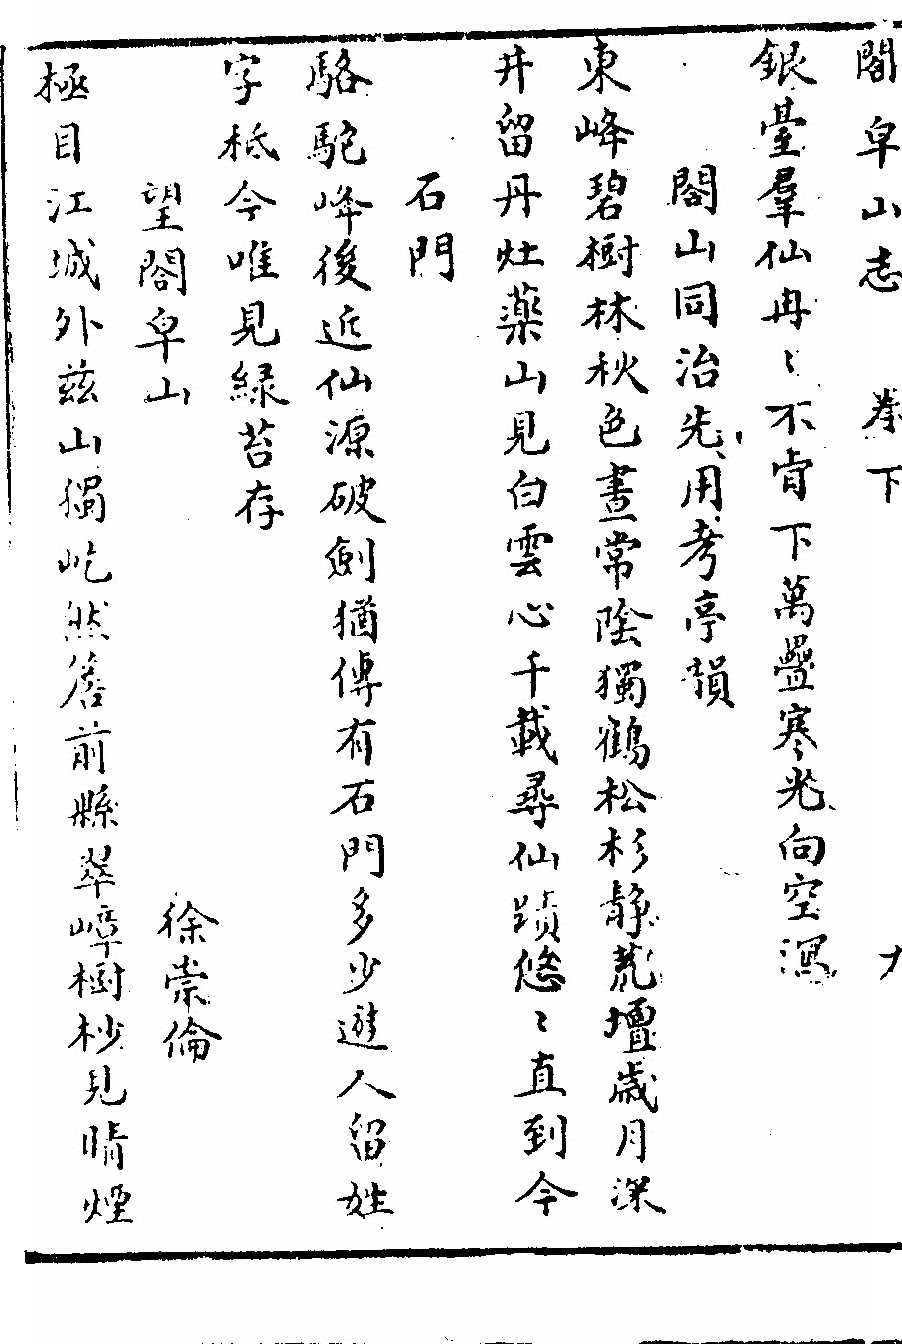 閤皁山志 卷下 九
銀臺羣仙冉〻不肯下萬疊寒光向空溟
閤山同治先用考亭韻
東峰碧樹林秋色晝常陰獨鶴松杉靜荒壇歲月深
井留丹灶藥山見白雲心千載尋仙蹟悠〻直到今
石門
駱駝峰後近仙源破劍猶傳有石門多少遊人留姓
字秪今唯見綠苔存
望閤皁山 徐崇倫
極目江城外茲山獨屹然簷前懸翠嶂樹杪見晴煙